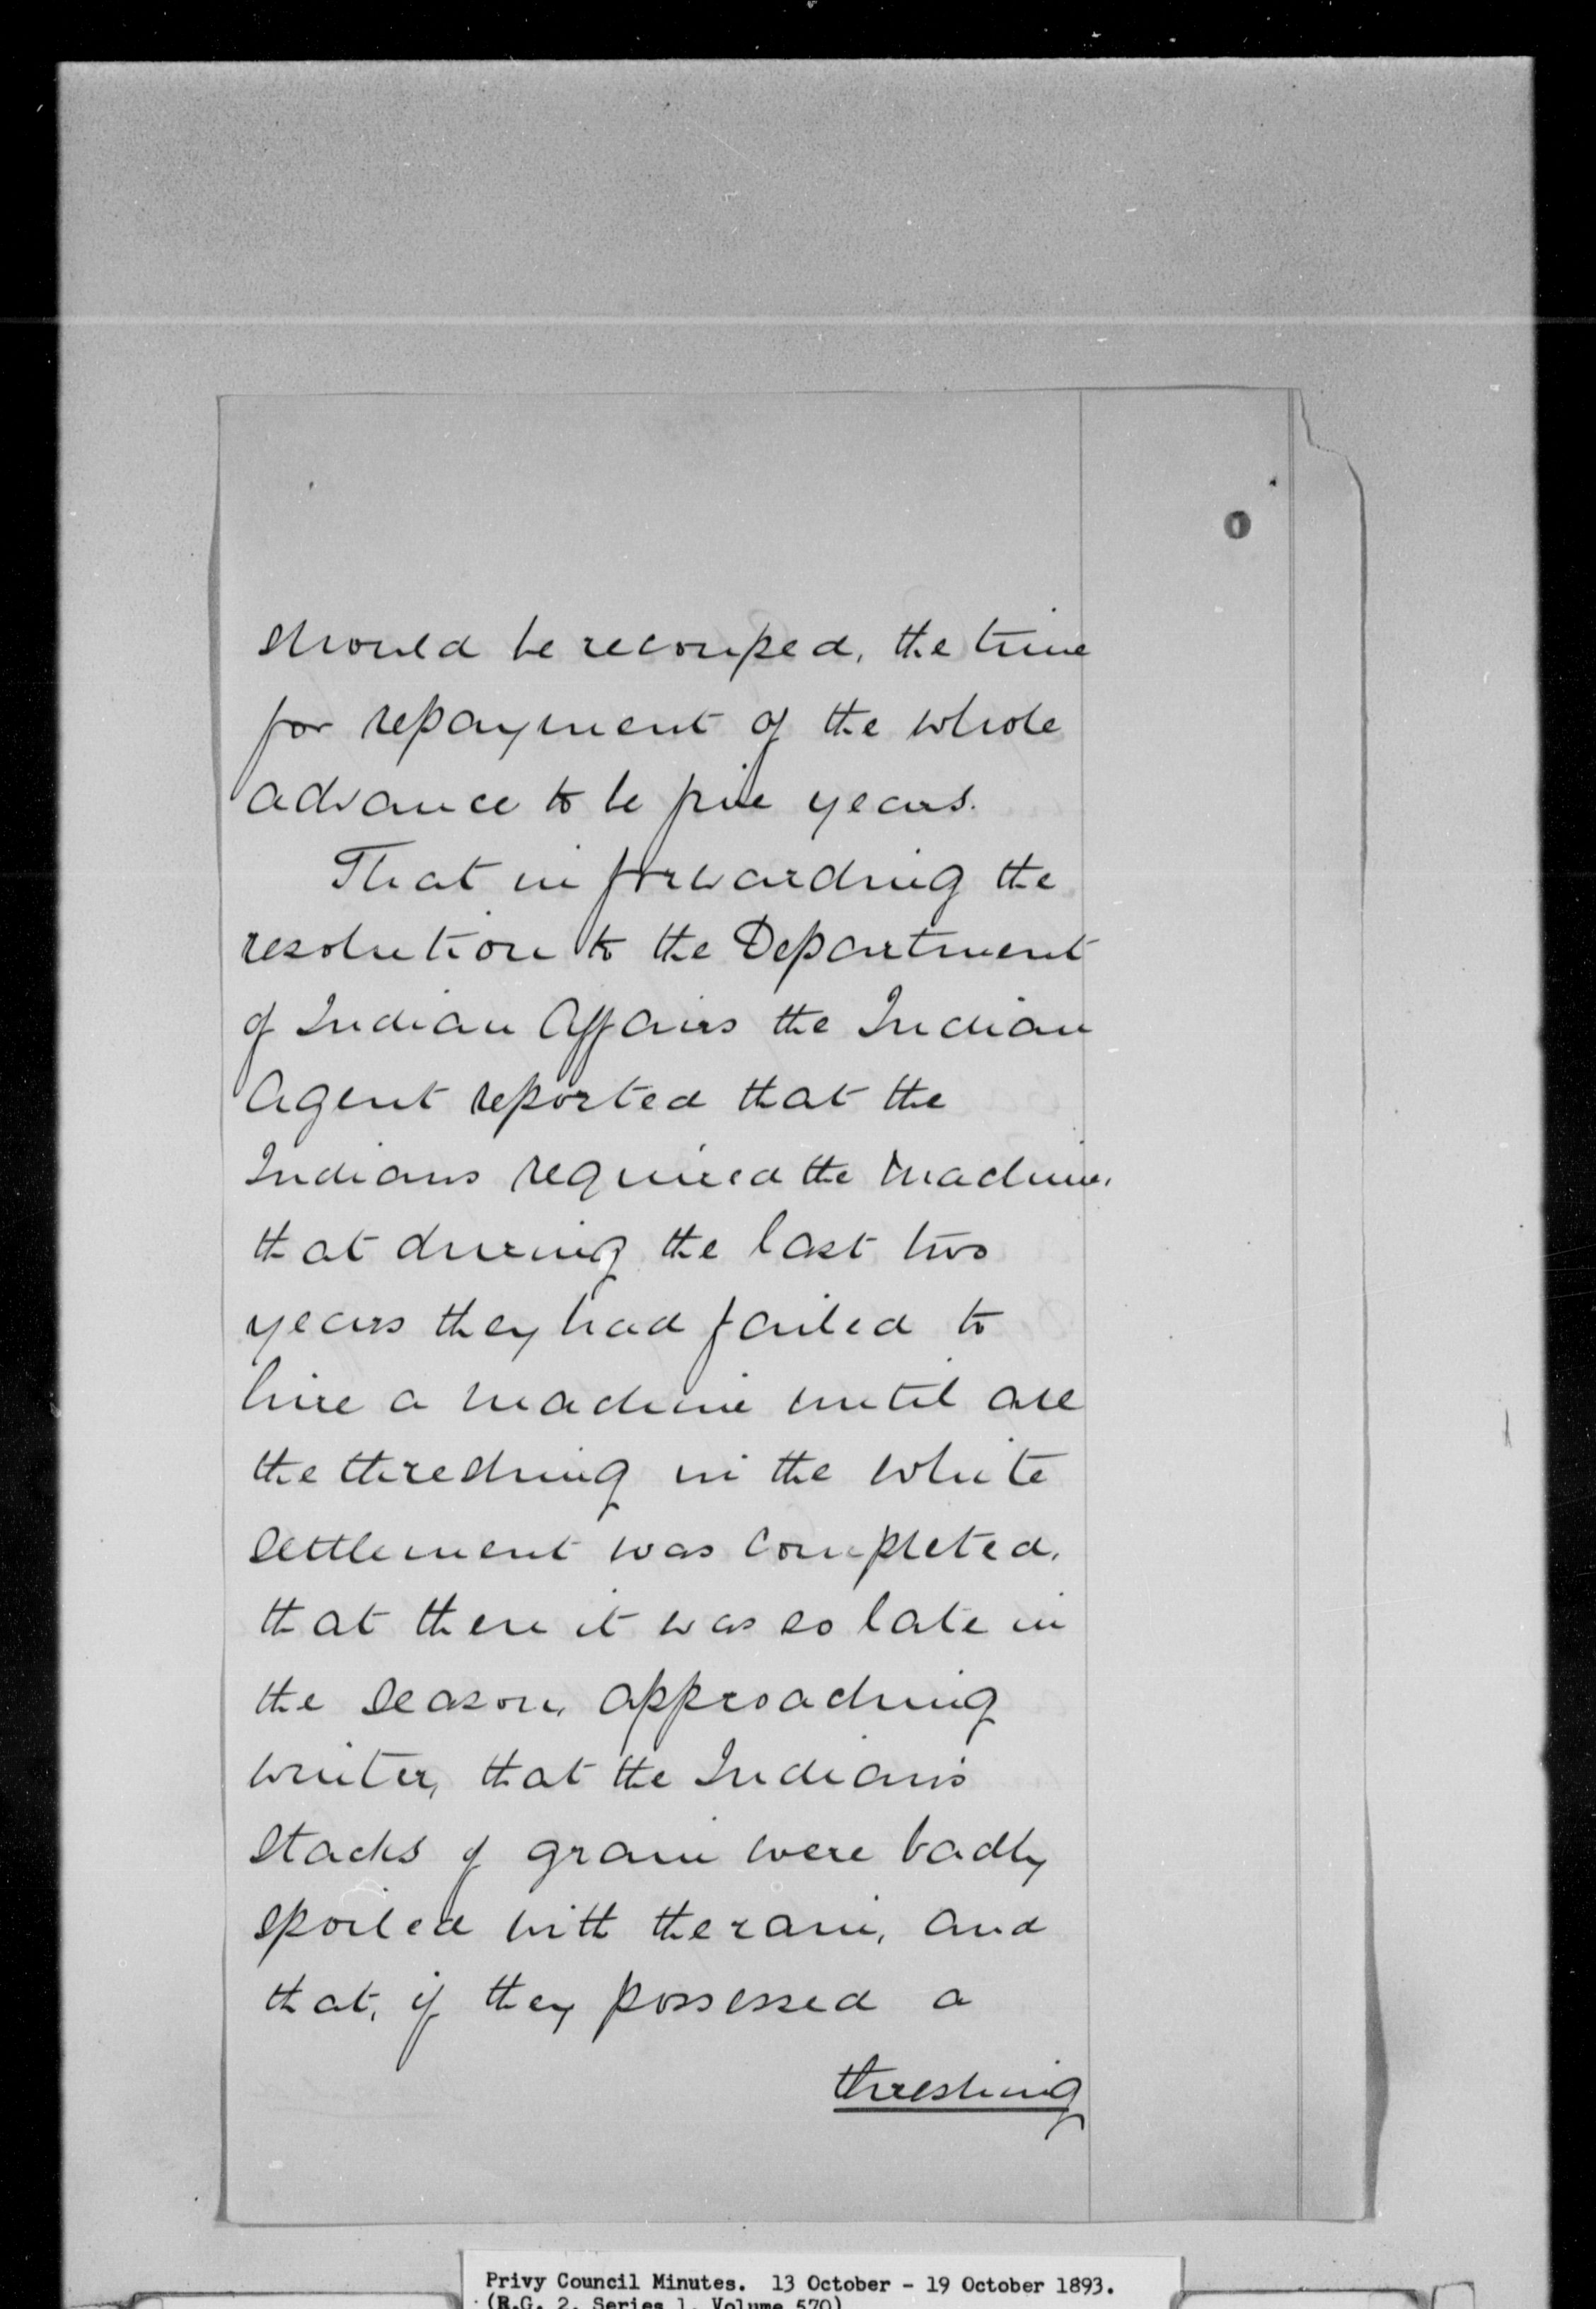 should be recouped, the time
for repayment of the whole
advance to be five years.
That in forwarding the
resolution to the Department
of Indian Affairs the Indian
Agent reported that the
Indians required the machine,
that during the last two
years they had failed to
hire a machine until all
the threshing in the white
settlement was completed,
that then it was so late in
the season, approaching
winter, that the Indian's
stacks of grain were badly
spoiled with the rain, and
that, if they possessed a
threshing
Privy Council Minutes. 13 October - 19 October 1893.
(R.G. 2, Series 1, Volume 570)